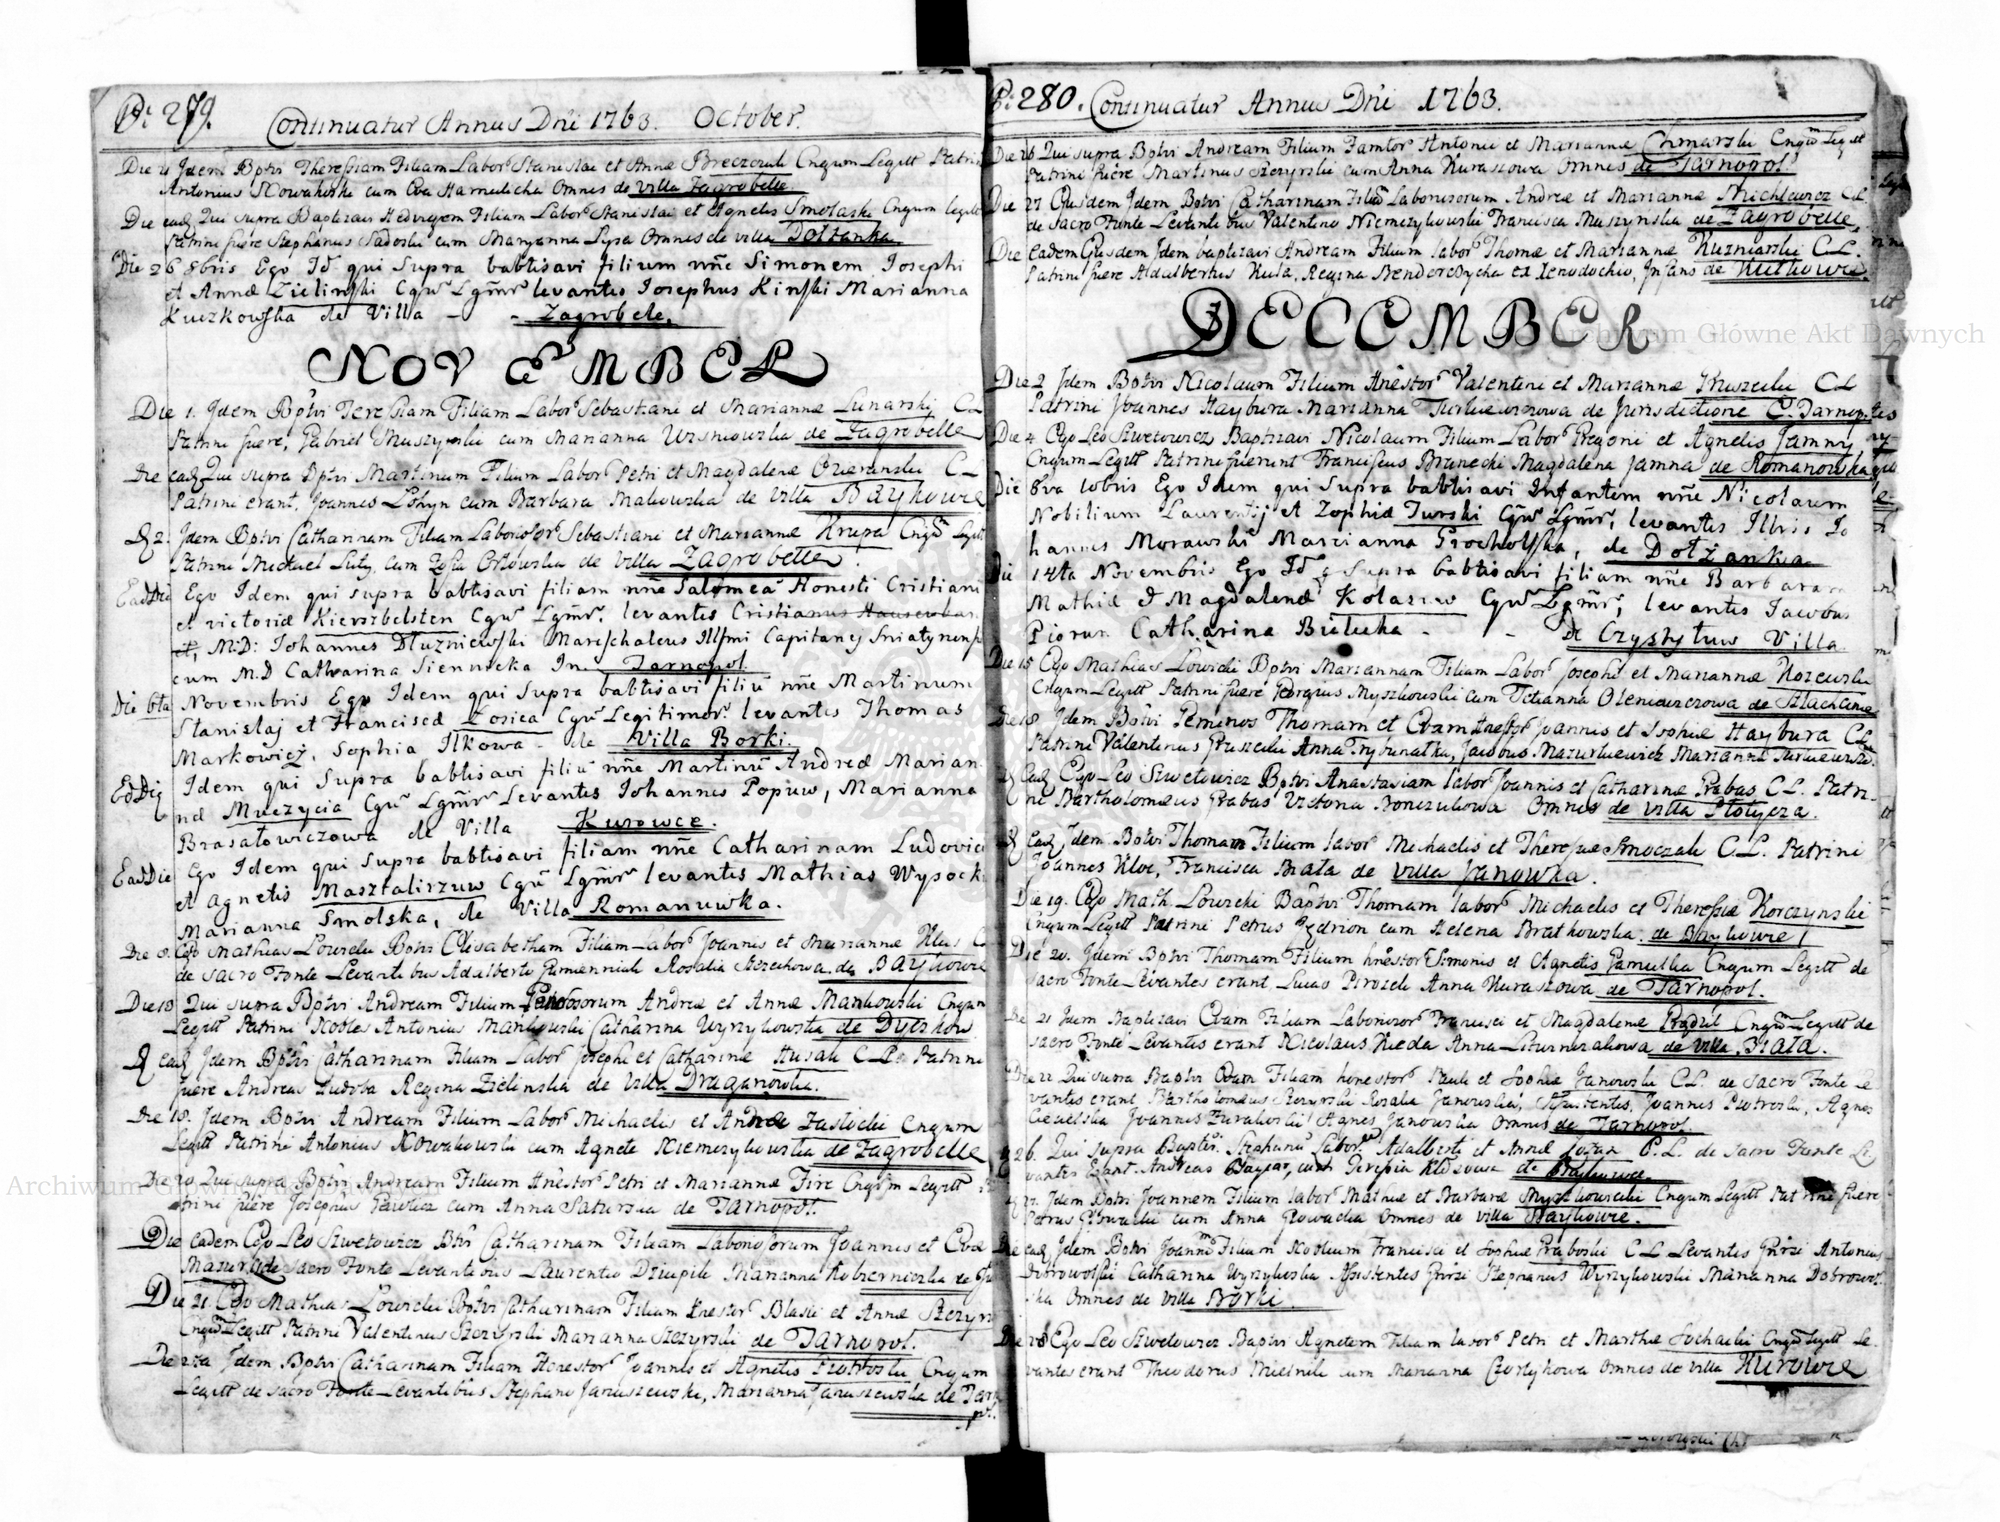 P: 279.
Continuatur Annus Dni 1763. October.
Die 21 Idem Bptvi Theressiam Filiam Labor Stanislai et Annæ Breczczuk Cngum Legitt Patrini
Antonius Nowakoski cum Eva Harnulicha Omnes de villa Zagrobelle
Die eadq Qui supra Baptizavi Hedvigem Filiam Labor Stanislai et Agnetis Smolaski Cngum legitt
Patrini fuere Stephanus Sadoski cum Maryanna Lysa Omnes de villa Dołżanka
Die 26 8bris Ego Id qui Supra babtisavi filium nñe Simonem Josephi
et Annæ Zielinski Cgũ Lgm̃r levantes Josephus Kinski Marianna
Kuczkowska de Villa - - Zagrobele.
NOVEMBER
Die 1. Idem Bptvi Teressiam Filiam Labor Sebastiani et Mariannæ Lunarski C.L.
Patrini fuere, Gabriel Muszynski cum Marianna Wisniowska de Zagrobelle
Die eadq Qui supra Bptvi Martinum Filium Labor Petri et Magdalenæ Owieranski C L
Patrini erant, Joannes Lohyn cum Barbara Makowska de villa BAYkowce
D 2. Idem Bptvi Catharinam Filiam Laborosor Sebastiani et Mariannæ Krupa Cngũ Legitt
Patrini Michael Luty, cum Zofia Orłowska de villa ZAgrobelle
EadDie Ego Idem qui supra babtisavi filiam nñe Salomea Honesti Cristiani
et victoriæ Kierszbelsten Cgũ Lgm̃r. levantes Cristianus
et, M.D: Iohannes Dłuzniewski Marschalcus Illsmi Capitanej Sniatynensis
cum M.D Catharina Siennicka In Tarnopol
Die 6ta Novembris Ego Idem qui Supra babtisavi filiũ nñe Martinum
Stanislaj et Francisca Łosica Cgũ Legitimor. levantes Thomas
Markowicz, Sophia Ilkowa - de Villa Borki.
EdDie Idem qui Supra babtisavi filiũ nñe Martinũ Andreæ Marian
næ Muczycia Cgũ Lgm̃r Levantes Iohannes Popiuw, Marianna
Brasałowiczowa de Villa Kurowce.
EadDie Ego Idem qui Supra babtisavi filiam nñe Catharinam Ludovici
et Agnetis Masztalirzuw Cgũ Lgm̃r levantes Mathias Wysock
Marianna Smolska, de Villa Romanuwka.
Die 8. Ego Mathias Łowicki Bptvi Elisabetham Filiam Labor Joannis et Mariannæ Klus C
de Sacro Fonte Levantibus Adalberto Gumienniak Rosalia Strzechowa de BAYkowce
Die 18 Qui supra Bptvi Andream Filium Andreæ et Annæ Mankowski Cngum
Legitt Patrini Nobles Antonius Mankowski Catharina Wyrzykowska de Dyczkow
D eadq Idem Bptvi Catharinam Filiam Labor Josephi et Catharinæ Husak C L Patrini
fuere Andreas Ludoba Regina Zielinska de villa Draganowka.
Die 18. Idem Bptvi Andream Filium Labor Michaelis et Andreæ Zaslocki Cngum
Legitt Patrini Antonius Nowakowski cum Agnete Niemczykowska de Zagrobelle
Die 20 Qui supra Bptvi Andream Filium Hnestor Petri et Mariannæ Fire Cngum Legitt
Patrini fuere Josephus Pawlicz cum Anna Saturska de TArnopol.
Die eadem Ego Leo Szwetowicz Btvi Catharinam Filiam Laboriosorum Joannis et Evæ
Mazur de Sacro Fonte Levantibus Laurentio Dziupik Marianna Kobierniczka de
Die 21. Ego Mathias Łowicki Bptvi Catharinam Filiam Hnestor Blasii et Annæ Szczyr
Cngum Legitt Patrini Valentinus Szczyrski Marianna Szczyrski de TArnopol.
Die 22a Idem Bptvi Catharinam Filiam Honestor Joannis et Agnetis Piotroski Cngum
Legitt de Sacro Fonte Levantibus Stephano Januszewski, Marianna Januszewska de Tarn
pol.
P: 280. Continuatur Annus Dni 1763.
Die 26 Qui supra Bptvi Andream Filium Famtor Antonii et Mariannæ Chmarski Cngum Legitt
Patrini fuere Martinus Szczyrski cum Anna Kuraszowa Omnes de TArnopol
Die 27 Ejusdem Idem Bptvi Catharinam Filiã Laboriosorum Andreæ et Mariannæ Michlewicz C.L.
de Sacro Fonte Levantibus Valentino Niemczykowski Francisca Muszynska de ZAgrobelle,
Die Eadem Ejusdem Idem baptizavi Andream Filium labor Thomæ et Mariannæ Kuzniarski C.L.
Patrini fuere Adalbertus Kula, Regina Benderedycha ex Xenodochio, Infans de Kutkowce.
DECEMBER
Die 2 Idem Bptvi Nicolaum Filium Hnestor Valentini et Mariannæ Kruszelu C L
Patrini Joannes Haybura Marianna Turkiewiczowa de Jurisdictione E. Tarnop.
Die 4 Ego Leo Szwetowicz Baptizavi Nicolaum Filium Labor Gregorii et Agnetis Jamny
Cngum Legitt Patrini fuerunt Franciscus Branecki Magdalena Jamna de Romanowka
Die 8va Xbris Ego Idem qui Supra babtisavi Infantem nñe Nicolaum
Nobilium Laurentij et Zophiæ Turski Cgũ Lgm̃r, levantes Illris Io
hannes Morawski Marcianna Grocholska, de Dołzanka
Die 14ta Novembris Ego Id q Supra babtisavi filiam nñe Barbaram
Mathiæ & Magdalenæ Kolasiw Cgũ Lgm̃r, levantes Jacobus
Piorun Catharina Bieluka - - de Czystyłuw Villa
Die 15 Ego Mathias Łowicki Bptvi Mariannam Filiam Labor Josephi et Mariannæ Kozewski
Cngum Legitt Patrini fuere Georgius Myszkowski cum Tetianna Oleniaczowa de Szlachcince
Die 18 Idem Bptvi Geminos Thomam et Evam Hnestor Joannis et Sophiæ Haybura C L
Patrini Valentinus Gruszecki Anna Trybunalka, Jacobus Mazurkiewicz Marianna Turkiewicz.
D Eadq Ego Leo Szwetowicz Bptvi Anastasiam labor Joannis et Catharinæ Grabas C.L. Patri-
ni Bartholomæus Grabas Victoria Bonczukowa Omnes de villa Płotycza.
D eadq Idem Bptvi Thomam Filium labor Michaelis et Theresiæ Smoczak C.L. Patrini
Joannes Kloc, Francisca Biała de villa Janowka.
Die 19. Ego Math. Łowicki Baptvi Thomam labor Michaelis et Theresiæ Korczynski
Cngum Legitt Patrini Petrus Jędrion cum Helena Bratkowska. de Baykowce
Die 20. Idem Bptvi Thomam Filium hnestor Simonis et Agnetis Gamulka Cngum Legitt de
Sacro Fonte Levantes erant, Lucas Pirozek Anna Kuraszowa de TArnopol.
Die 21 Idem Baptizavi Evam Filiam Laborosor Francisci et Magdalenæ Prędzil Cngum Legitt de
sacro Fonte Levantes erant Nicolaus Kieda Anna Liturnizakowa de villa BiAła.
Die 22 Qui supra Baptvi Evam Filiam honestor Pauli et Sophiæ Janowski C.L. de Sacro Fonte Le
vantes erant Bartholomæus Szczyrski Rosalia Janowska, Assistentes, Joannes Piotroski, Agnes
Ciecielska Joannes Zurakoski Agnes Janowska Omnes de TArnopol.
D 26. Qui supra Baptvi Stephanũ Labor Adalberti et Annæ Łoza C.L. de Sacro Fonte Le
vantes Erant. Andreas cum Teressia de Baykowce.
D 27. Idem Bptvi Joannem Filium labor Mathiæ et Barbaræ Myszkowski Cngum Legitt Patrini fuere
Petrus Głowacki cum Anna Głowacka Omnes de villa BAykowce.
Die eadq Idem Bptvi Joannẽ Filium Nobilium Francisci et Sophiæ Graboski C L Levantes Gnrsi Antonius
Dobrowolski Catharina Wyrzykoska. Assistentes Gnrsi Stephanus Wyrzykowski Marianna Dobrowol
ska Omnes de villa Borki.
Die 28 Ego Leo Szwetowicz Baptvi Agnetem Filiam labor Petri et Marthæ Sochacki Cngũ Legitt Le
vantes erant Theodorus Mielnik cum Marianna Czortykowa Omnes de villa Kurowce
Archiwum Główne Akt Dawnych
Archiwum Główne Akt Dawnych